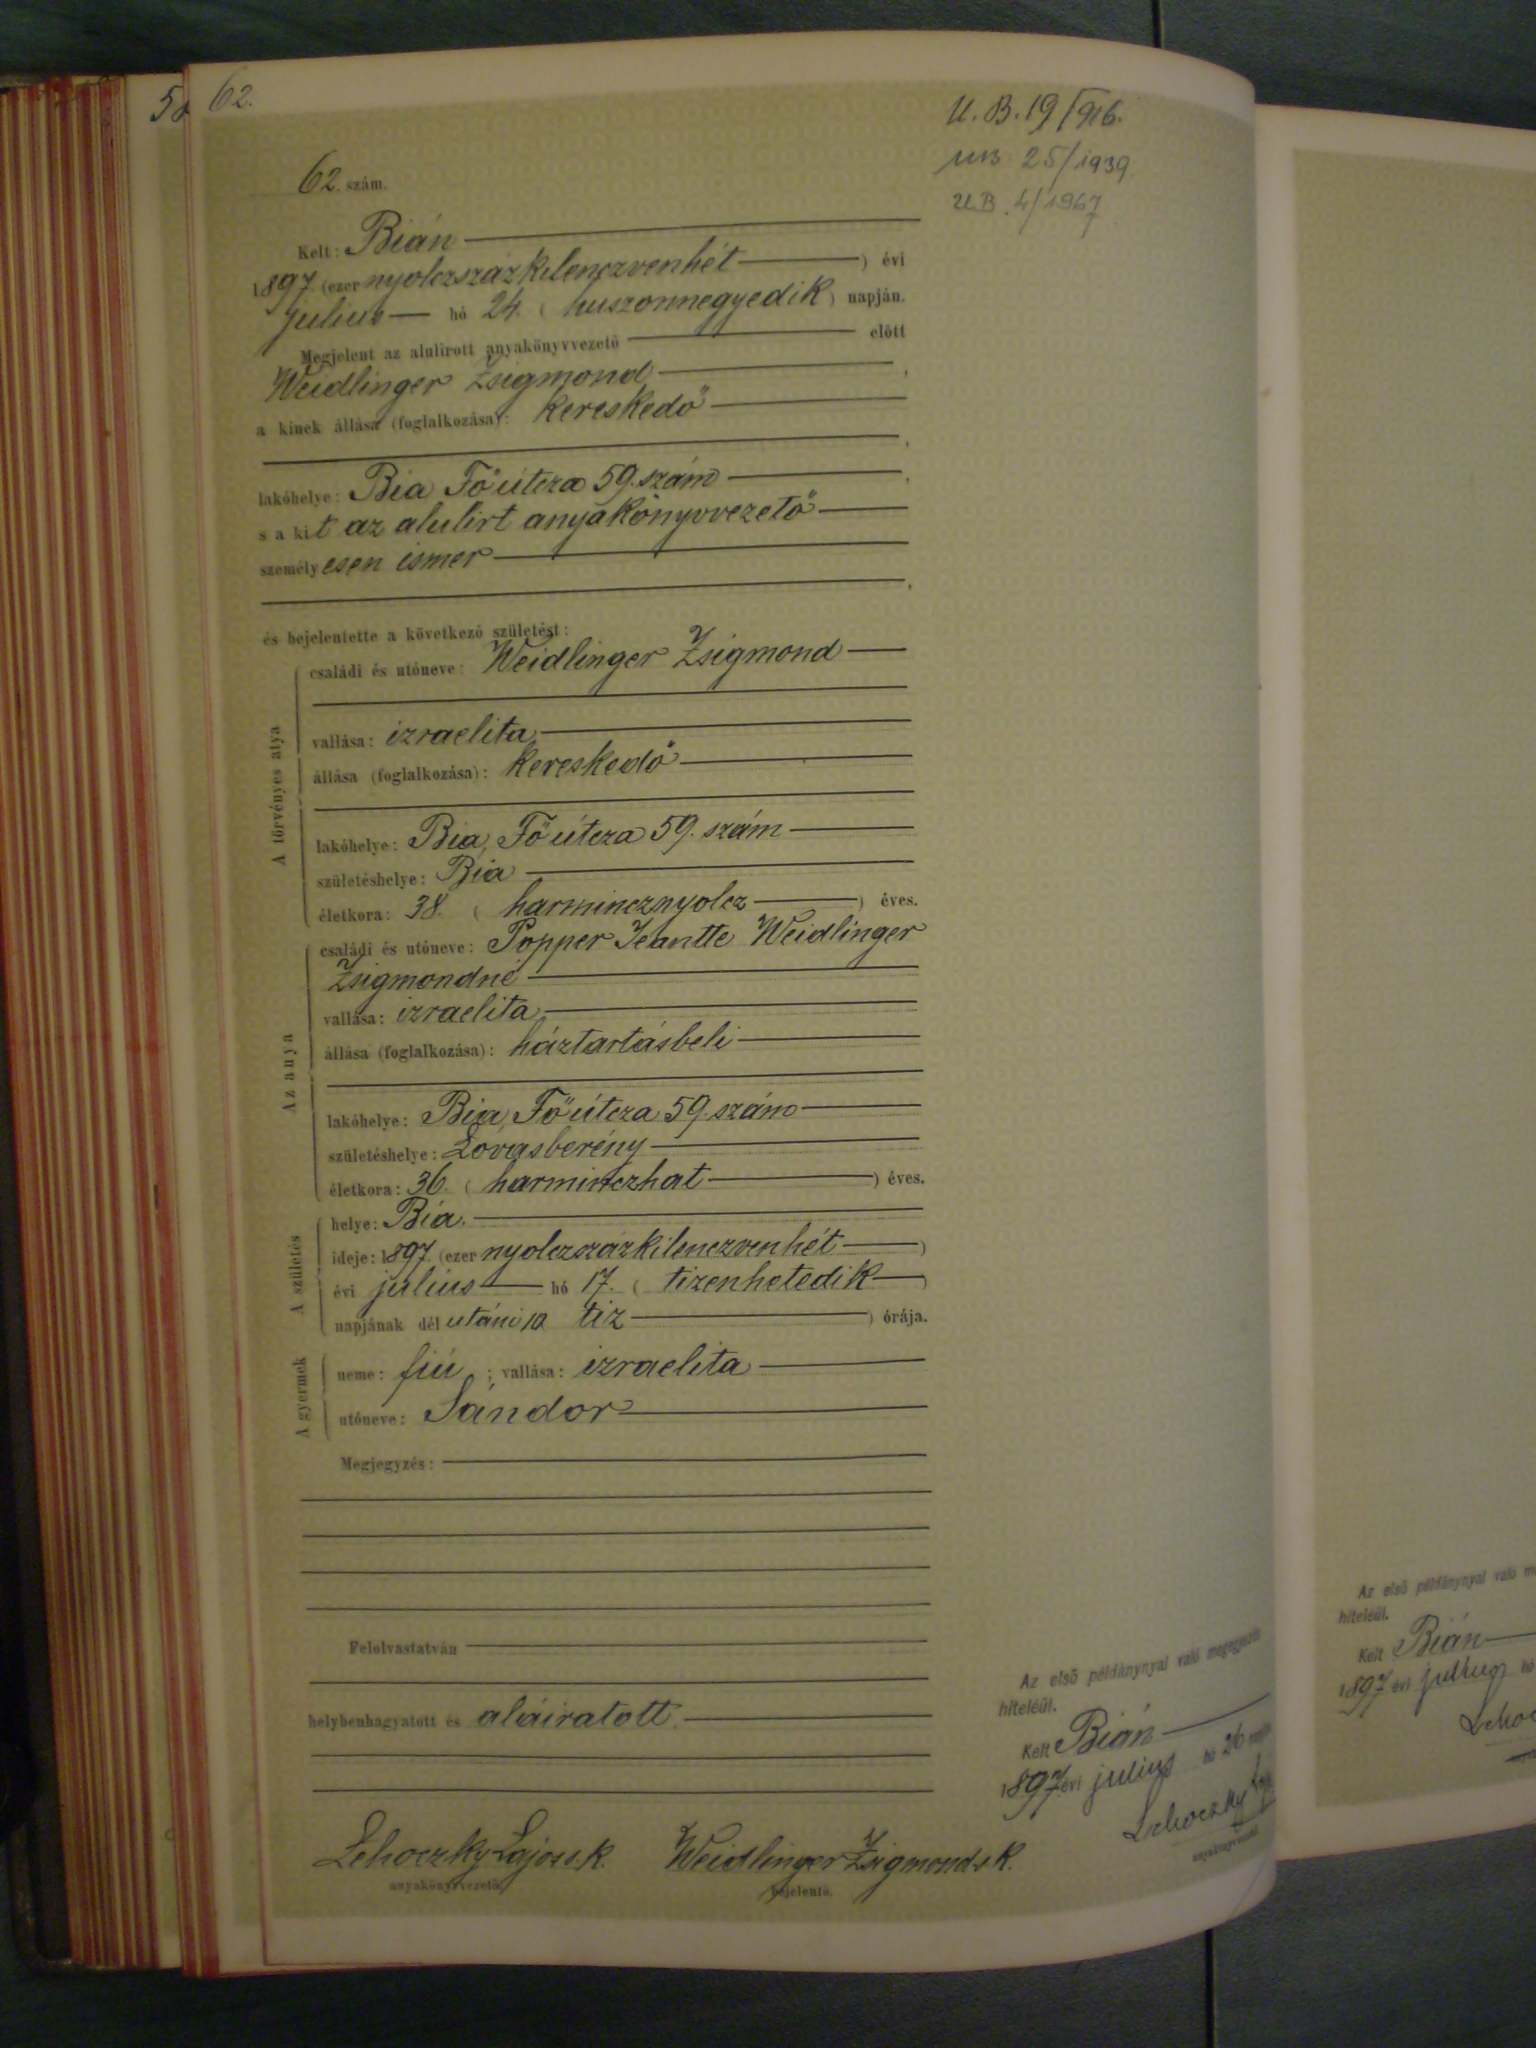 62.
U.B. 19/916.
UB. 25/1939
U.B. 4/1967
62. szám.
Kelt: Bián
1897. (ezer nyolczszázkilenczvenhét) évi
julius hó 24. (huszonnegyedik) napján.
Megjelent az alulirott anyakönyvvezető előtt
Weidlinger Zsigmond,
a kinek állása (foglalkozása): kereskedő
,
lakóhelye: Bia Fő útcza 59. szám,
s a kit az alulirt anyakönyvvezető
személyesen ismer
,
és bejelentette a következő születést:
A törvényes atya
családi és utóneve: Weidlinger Zsigmond
vallása: izraelita
állása (foglalkozása): kereskedő
lakóhelye: Bia, Fő útcza 59. szám
születéshelye: Bia
életkora: 38. (harmincznyolcz) éves.
Az anya
családi és utóneve: Popper Jeantte Weidlinger
Zsigmondné
vallása: izraelita
állása (foglalkozása): háztartásbeli
lakóhelye: Bia, Fő útcza 59. szám
születéshelye: Lovasberény
életkora: 36. (harminczhat) éves.
A születés
helye: Bia.
ideje: 1897. (ezer nyolczszázkilenczvenhét)
évi julius hó 17. (tizenhetedik)
napjának dél utáni 10 tiz) órája.
A gyermek
neme: fiú; vallása: izraelita
utóneve: Sándor
Megjegyzés:
Felolvastatván
helybenhagyatott és aláiratott.
Lehoczky Lajos s. k.
anyakönyvvezető
Weidlinger Zsigmond s. k.
bejelentő.
Az első példánynyal való megegyezés
hiteléül.
Kelt Bián
1897. évi julius hó 26
Lehoczky
anyakönyvvezető
Az első példánynyal való
hiteléül.
Kelt Bián
1897 évi julius hó